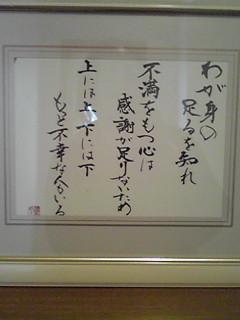 わが身の
足るを知れ
不満をもつ心は
感謝が足りないため
上には上 下には下
もっと不幸な人がいる